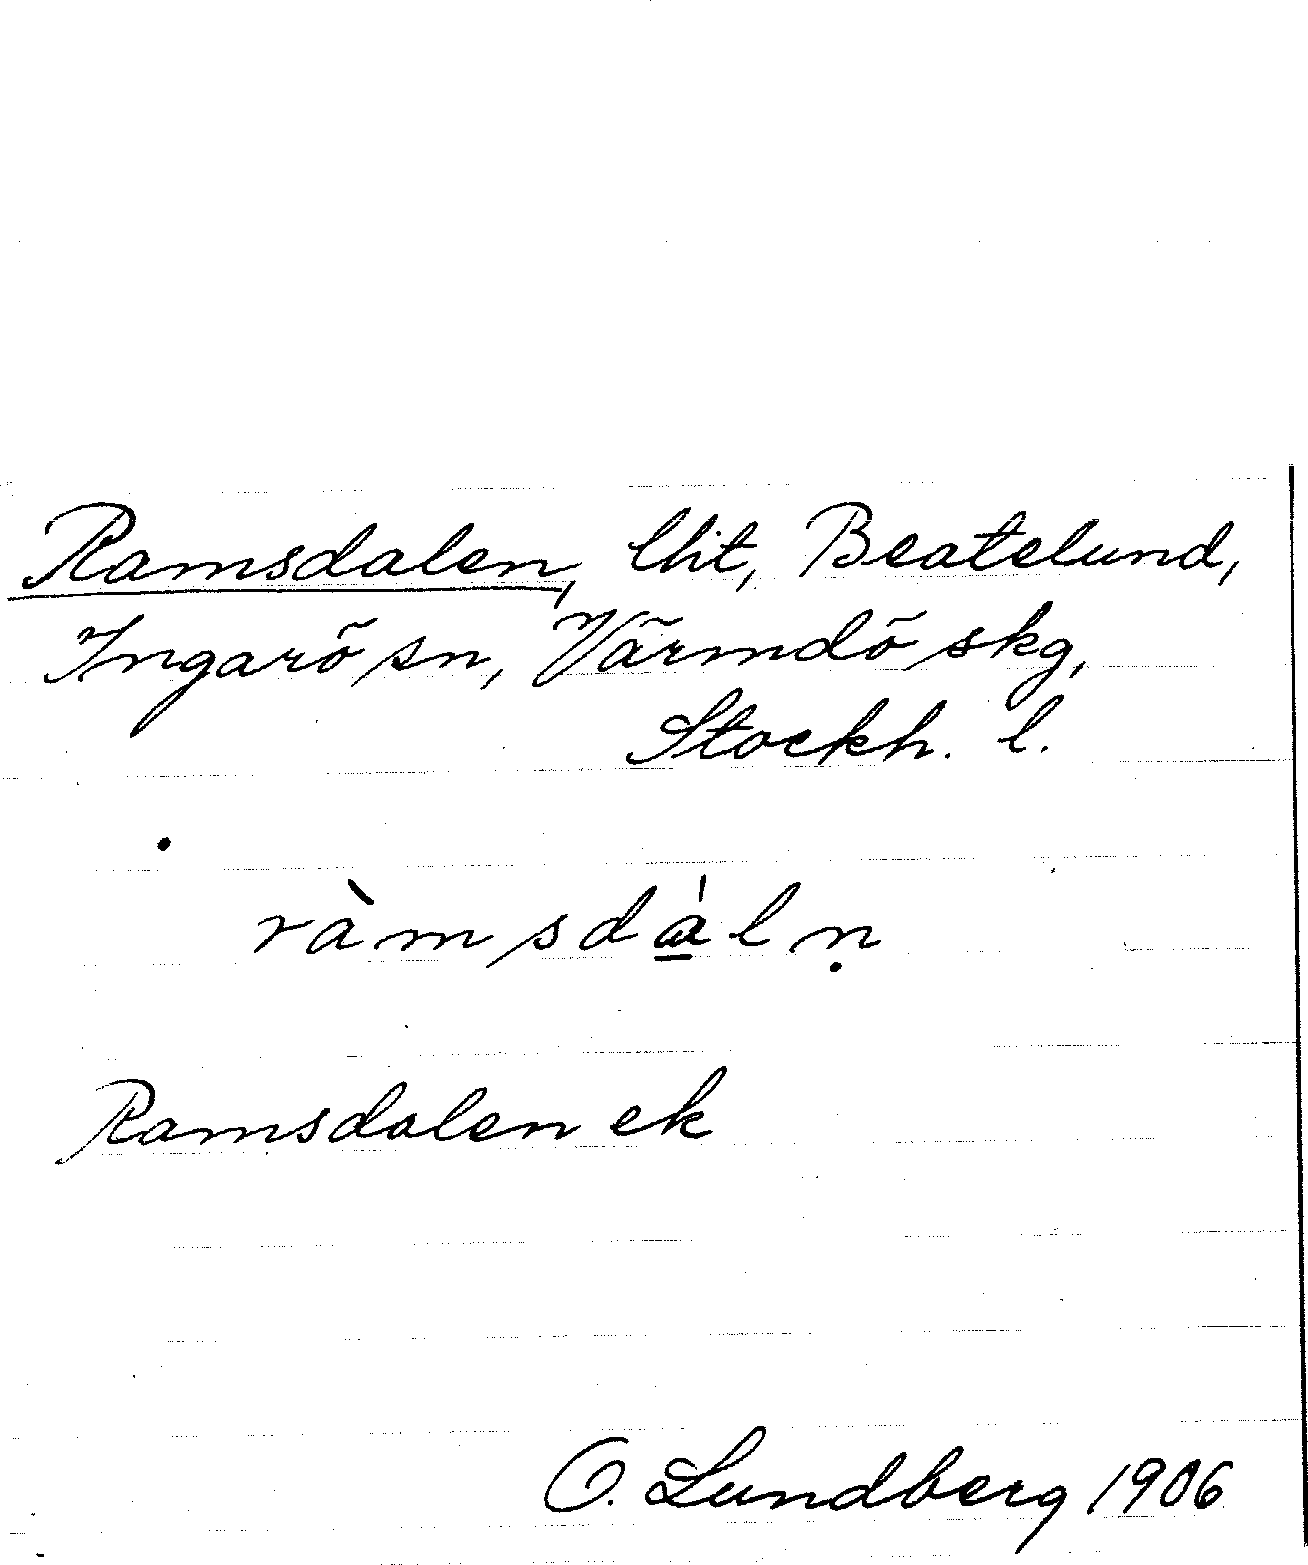 Ramsdalen, lht, Beatelund,
Ingarö sn, Värmdö skg,
Stockh. l.
ràmsdά̲lṇ
Ramsdalen ek
O. Lundberg 1906